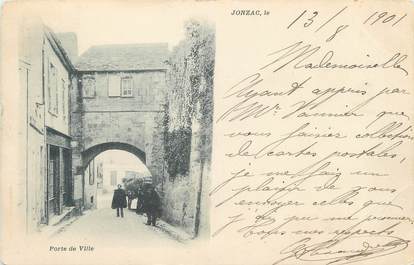 JONZAC, le 13/8 1901
Mademoiselle
Ayant appris par
Mr Vannier que
vous faisiez collection
de cartes postales,
je me fais un
plaisir de vous
envoyer celles que
j'ai pu me procurer
Tous mes respects
Porte de Ville